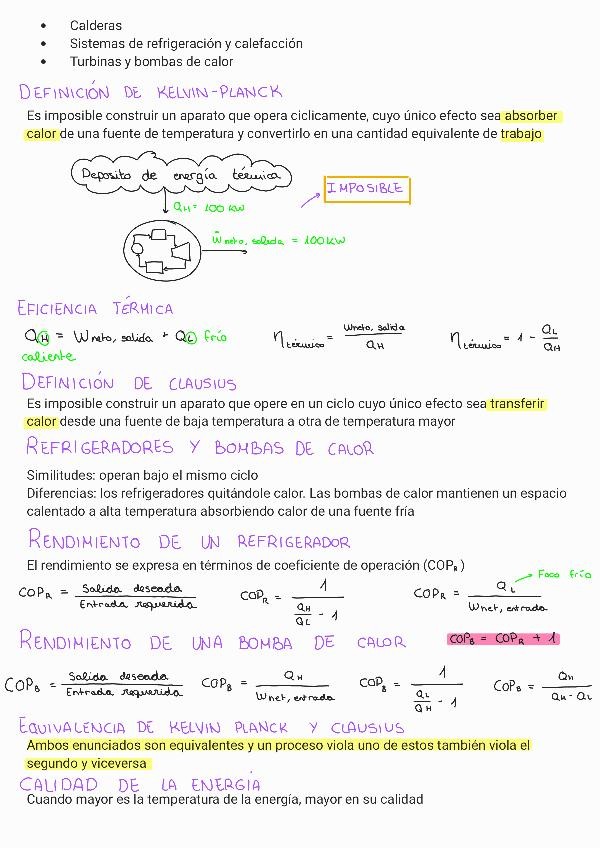 • Calderas
• Sistemas de refrigeración y calefacción
• Turbinas y bombas de calor
DEFINICIÓN DE KELVIN-PLANCK
Es imposible construir un aparato que opera ciclicamente, cuyo único efecto sea absorber
calor de una fuente de temperatura y convertirlo en una cantidad equivalente de trabajo
Deposito de energía térmica
IMPOSIBLE
QH = 100 KW
Ẇneto, salida = 100KW
EFICIENCIA TÉRMICA
QH = Wneto, salida + QL frío
caliente
ηtérmico = Wneto, salida / QH
ηtérmico = 1 - QL / QH
DEFINICIÓN DE CLAUSIUS
Es imposible construir un aparato que opere en un ciclo cuyo único efecto sea transferir
calor desde una fuente de baja temperatura a otra de temperatura mayor
REFRIGERADORES Y BOMBAS DE CALOR
Similitudes: operan bajo el mismo ciclo
Diferencias: los refrigeradores quitándole calor. Las bombas de calor mantienen un espacio
calentado a alta temperatura absorbiendo calor de una fuente fría
RENDIMIENTO DE UN REFRIGERADOR
El rendimiento se expresa en términos de coeficiente de operación (COPR)
COPR = Salida deseada / Entrada requerida
COPR = 1 / (QH / QL - 1)
COPR = QL / Wnet, entrada
Foco frío
RENDIMIENTO DE UNA BOMBA DE CALOR
COPB = COPR + 1
COPB = Salida deseada / Entrada requerida
COPB = QH / Wnet, entrada
COPB = 1 / (QL / QH - 1)
COPB = QH / (QH - QL)
EQUIVALENCIA DE KELVIN PLANCK Y CLAUSIUS
Ambos enunciados son equivalentes y un proceso viola uno de estos también viola el
segundo y viceversa
CALIDAD DE LA ENERGÍA
Cuando mayor es la temperatura de la energía, mayor en su calidad